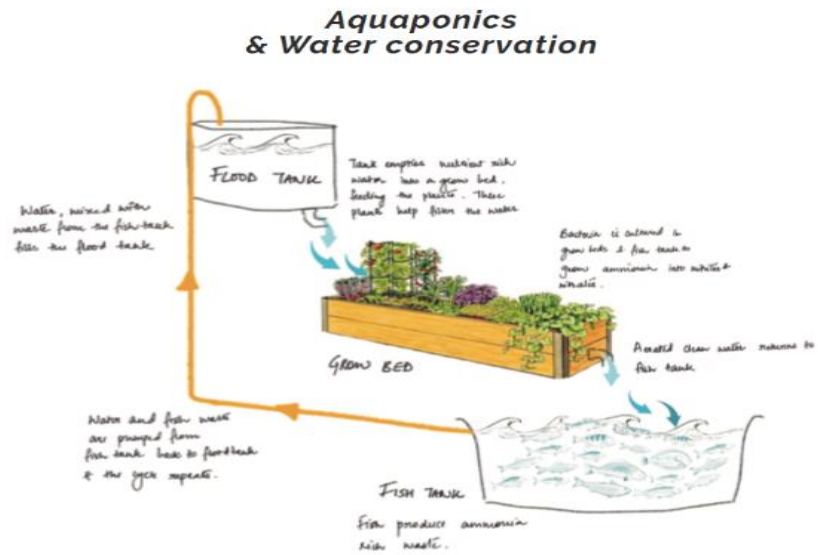 Aquaponics
& Water conservation
FLOOD TANK
Tank empties nutrient rich
water into a grow bed,
feeding the plants. These
plants help filter the water
Water, mixed with
waste from the fish tank
fills the flood tank
Bacteria is cultured in
grow beds & fish tank to
ammonia into nitrites &
nitrates.
GROW BED
Aerated clean water returns to
fish tank
Water and fish waste
are pumped from
fish tank back to flood tank
& the cycle repeats.
FISH TANK
Fish produce ammonia
rich waste.